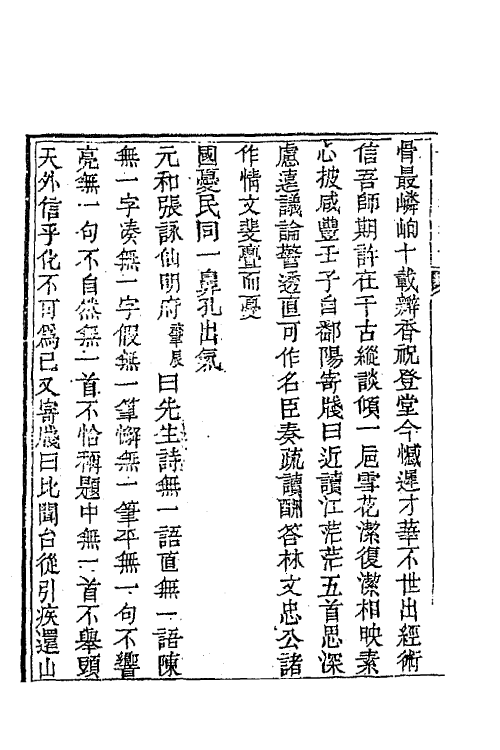 骨最嶙峋十載瓣香祝登堂今憾遲才華不世出經術
信吾師期許在千古縱談傾一巵雪花潔復潔相映素
心披咸豐壬子自鄱陽寄牋曰近讀江茫茫五首思深
慮遠議論警透直可作名臣奏疏讀酬答林文忠公諸
作情文斐亹而憂
國憂民同一鼻孔出氣
元和張詠仙明府肇辰曰先生詩無一語直無一語陳
無一字湊無一字假無一筆懈無一筆平無一句不響
亮無一句不自然無一首不恰稱題中無一首不舉頭
天外信乎化不可爲已又寄牋曰比聞台從引疾還山